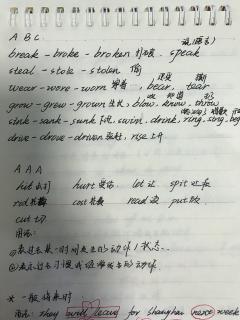 A B C:
说(语言)
break - broke - broken 打破, speak
steal - stole - stolen 偷
wear - wore - worn 穿着, bear, tear
grow - grew - grown 生长, blow, know, throw
sink - sank - sunk 下沉, swim, drink, ring, sing, beg
drive - drove - driven, rise 上升
A A A
hurt 受伤 let 让 spit
cost 花费 read 读 put 放
cut 切
用法:
①表过去某一时间发生的动作/状态
②表过去习惯
* 一般将来时
they will leave for Shanghai next week